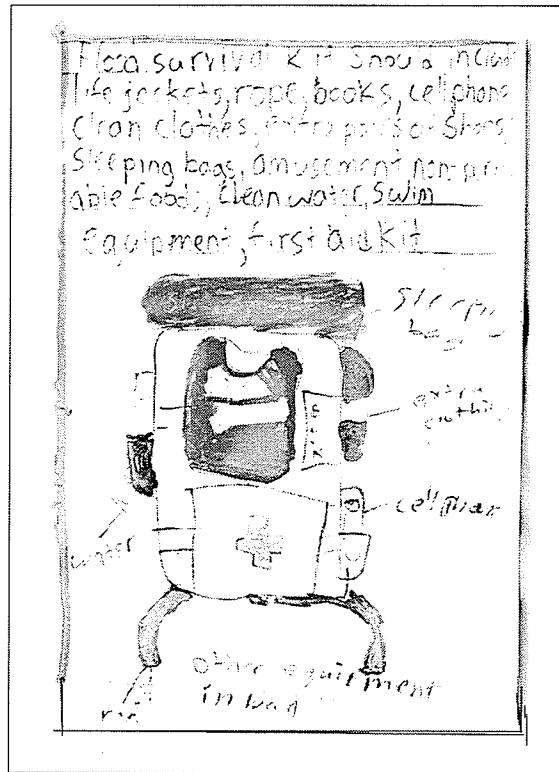 Flood survival kit should include
life jackets, rope, books, cellphone
clean clothes, extra pairs of shoes
Sleeping bags, amusement, non-peri
able foods, Clean water, Swim
Equipment, first aid kit
Sleeping
bag
extra
clothing
cellphon
water
other equitment
in bag